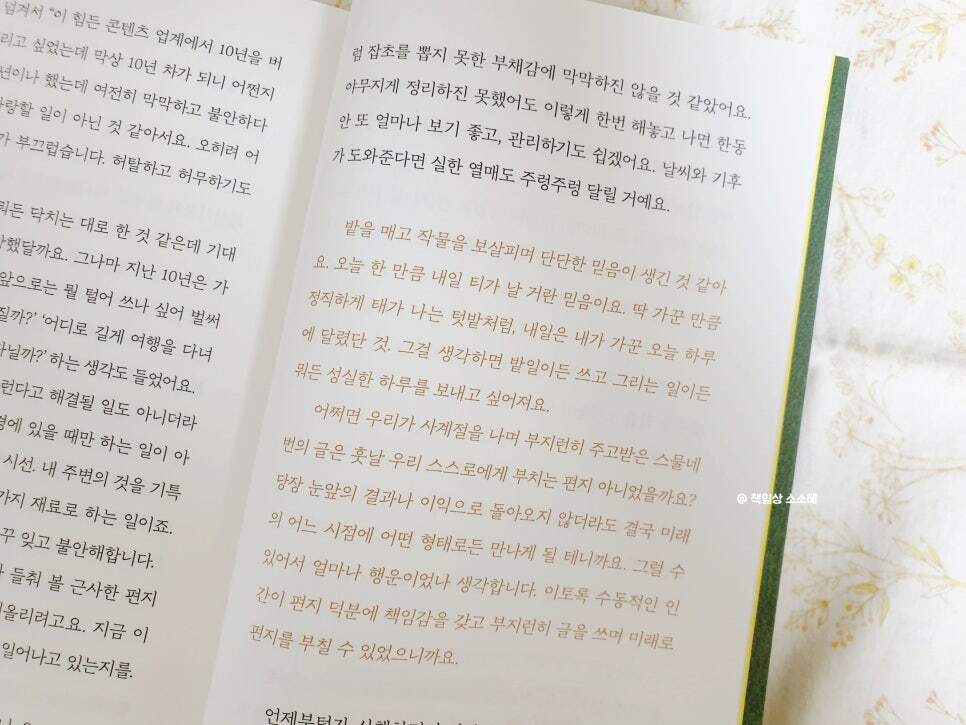 넘겨서 “이 힘든 콘텐츠 업계에서 10년을 버
리고 싶었는데 막상 10년 차가 되니 어쩐지
년이나 했는데 여전히 막막하고 불안하다
사랑할 일이 아닌 것 같아서요. 오히려 어
가 부끄럽습니다. 허탈하고 허무하기도
뭐든 닥치는 대로 한 것 같은데 기대
했달까요. 그나마 지난 10년은 가
앞으로는 뭘 털어 쓰나 싶어 벌써
질까?’ ‘어디로 길게 여행을 다녀
아닐까?’ 하는 생각도 들었어요.
런다고 해결될 일도 아니더라
경에 있을 때만 하는 일이 아
시선. 내 주변의 것을 기특
가지 재료로 하는 일이죠.
꾸 잊고 불안해합니다.
들춰 볼 근사한 편지
올리려고요. 지금 이
일어나고 있는지를.
럼 잡초를 뽑지 못한 부채감에 막막하진 않을 것 같았어요.
야무지게 정리하진 못했어도 이렇게 한번 해놓고 나면 한동
안 또 얼마나 보기 좋고, 관리하기도 쉽겠어요. 날씨와 기후
가 도와준다면 실한 열매도 주렁주렁 달릴 거예요.
밭을 매고 작물을 보살피며 단단한 믿음이 생긴 것 같아
요. 오늘 한 만큼 내일 티가 날 거란 믿음이요. 딱 가꾼 만큼
정직하게 태가 나는 텃밭처럼, 내일은 내가 가꾼 오늘 하루
에 달렸단 것. 그걸 생각하면 밭일이든 쓰고 그리는 일이든
뭐든 성실한 하루를 보내고 싶어져요.
어쩌면 우리가 사계절을 나며 부지런히 주고받은 스물네
번의 글은 훗날 우리 스스로에게 부치는 편지 아니었을까요?
당장 눈앞의 결과나 이익으로 돌아오지 않더라도 결국 미래
의 어느 시점에 어떤 형태로든 만나게 될 테니까요. 그럴 수
있어서 얼마나 행운이었나 생각합니다. 이토록 수동적인 인
간이 편지 덕분에 책임감을 갖고 부지런히 글을 쓰며 미래로
편지를 부칠 수 있었으니까요.
@ 책일상 소소혜